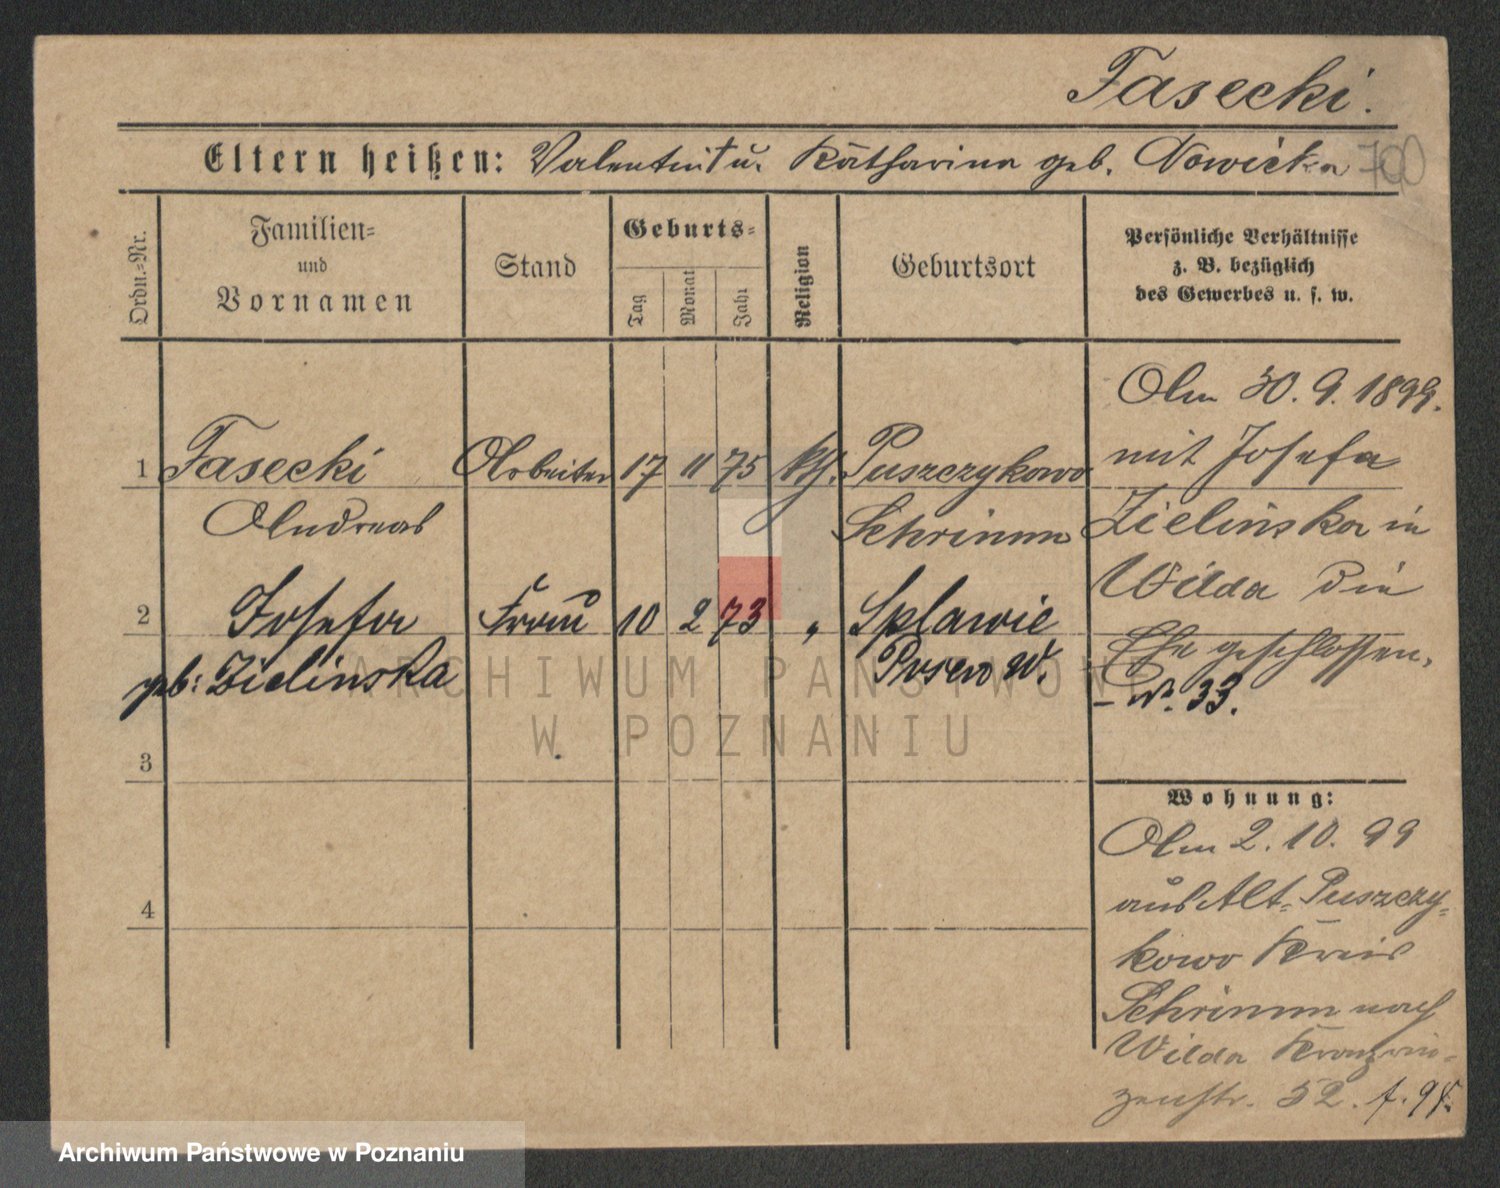 Fasecki.
Eltern heißen: Valentin u. Katharina geb. Nowicka 700
Ordn.=Nr.
Familien=
und
Vornamen
Stand
Geburts=
Tag
Monat
Jahr
Religion
Geburtsort
Persönliche Verhältnisse
z. B. bezüglich
des Gewerbes u. s. w.
1 Fasecki Arbeiter 17 11 75 kth. Puszczykowo
Andreas Schrimm
2 Josefa Frau 10 2 73 " Splawie
geb: Zielinska Posen W.
3
4
Am 30. 9. 1899.
mit Josefa
Zielinska in
Wilda die
Ehe geschlossen.
- Nr. 33.
Wohnung:
Am 2. 10. 99
aus Alt-Puszczy=
kowo Kreis
Schrimm nach
Wilda Kronprin=
zenstr. 52.
ARCHIWUM PAŃSTWOWE
W POZNANIU
Archiwum Państwowe w Poznaniu